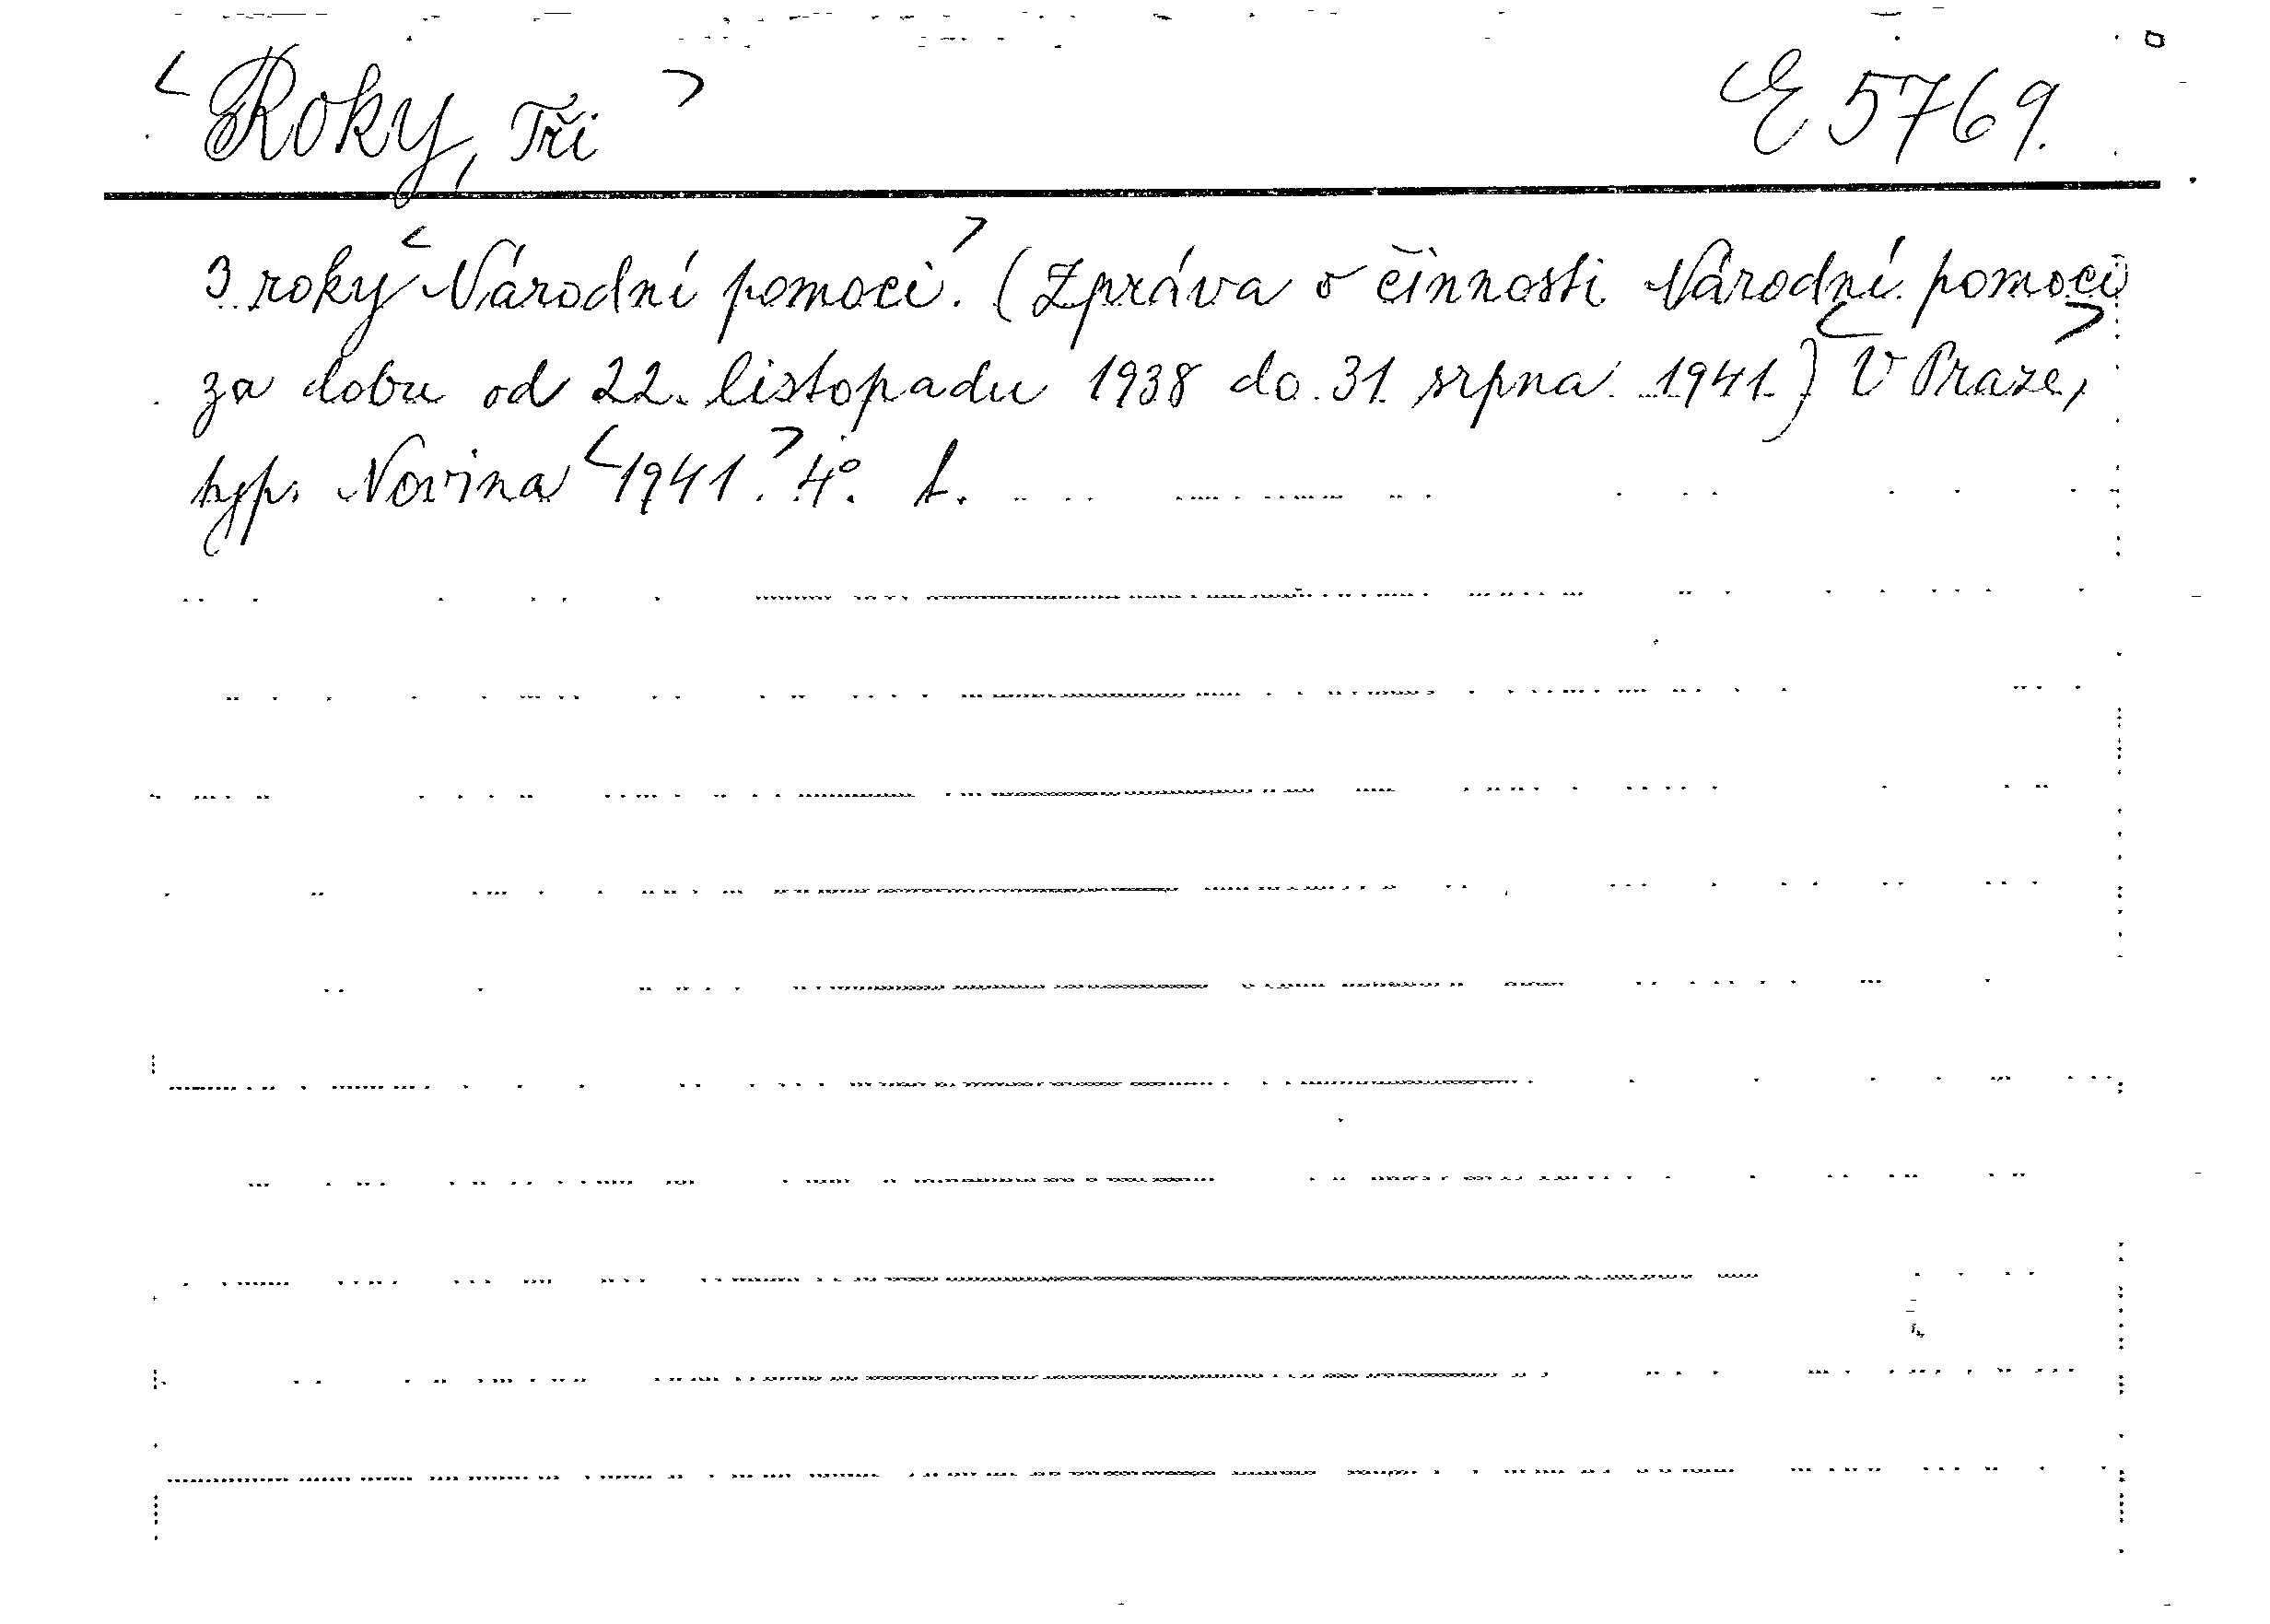 <Roky, Tři> E 5769.
3 roky <Národní pomoci.> (Zpráva o činnosti Národní pomoci
za dobu od 22. listopadu 1938 do 31. srpna 1941.) <V Praze,>
typ. Novina <1941.> 4°.